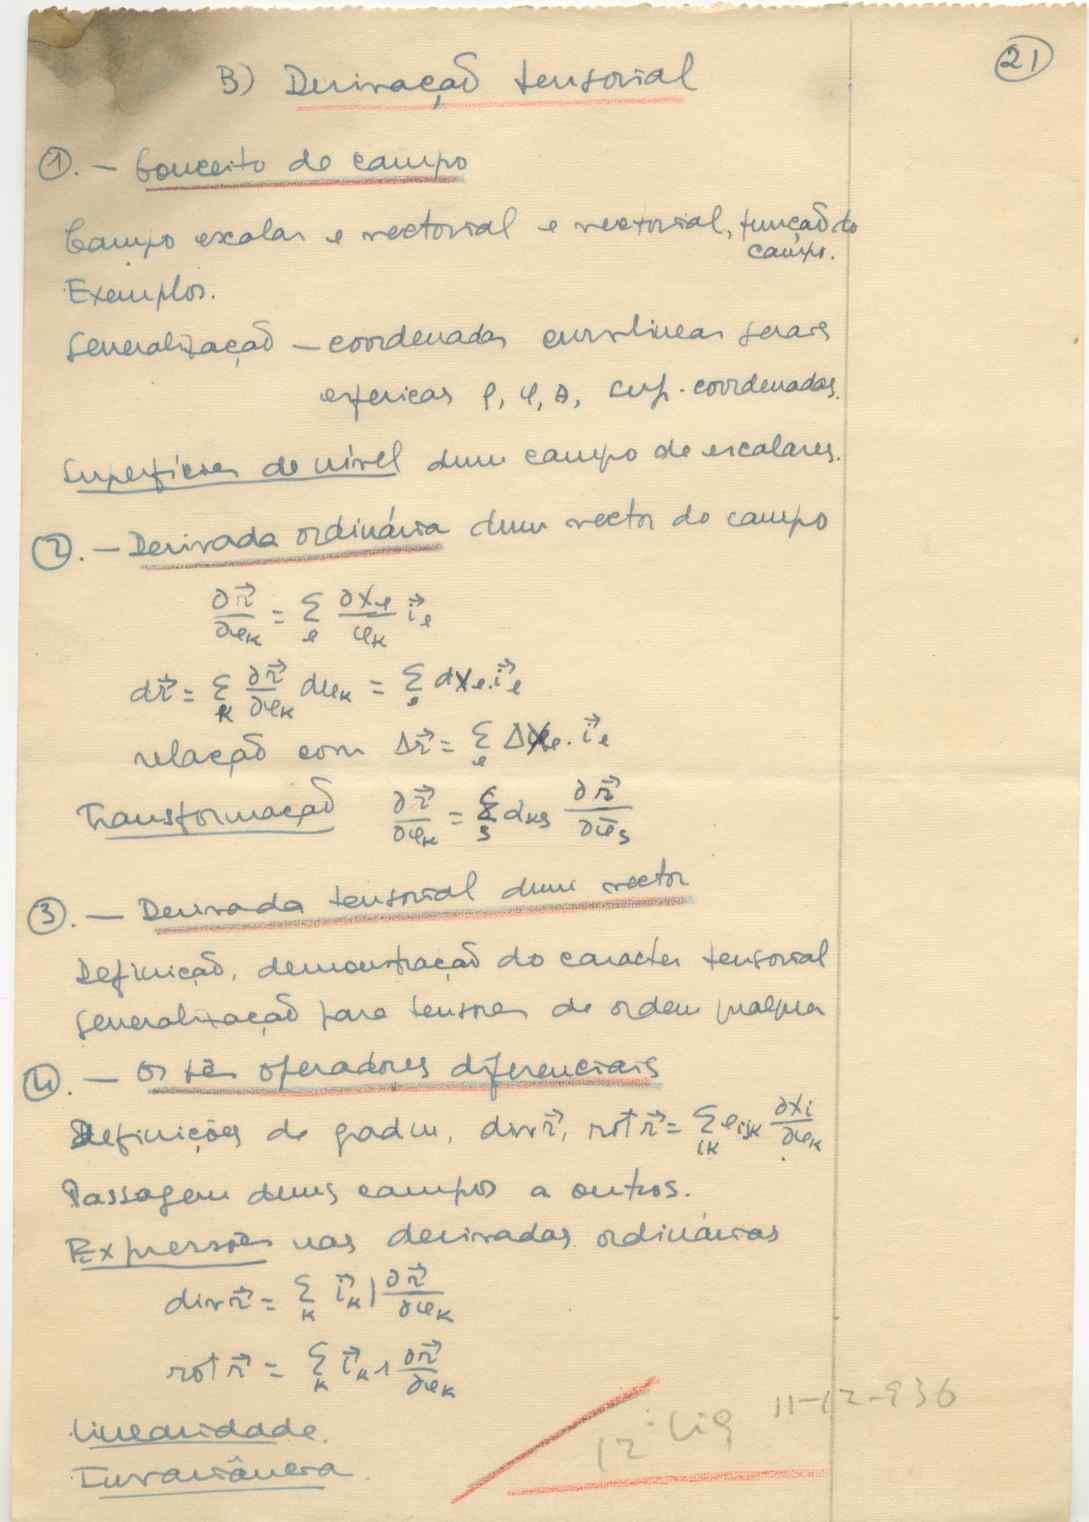 21
B) Derivação tensorial
1. – Conceito de campo
Campo escalar e vectorial e vectorial, função do
campo.
Exemplos.
Generalização – coordenadas curvilíneas gerais
esfericas ρ, φ, θ, sup. coordenadas.
Superfícies de nível dum campo de escalares.
2. – Derivada ordinária dum vector do campo
∂r⃗/∂φₖ = Σₑ ∂xₑ/φₖ i⃗ₑ
dr⃗ = Σₖ ∂r⃗/∂φₖ dφₖ = Σₑ dxₑ. i⃗ₑ
relação com Δr⃗ = Σₑ Δxₑ. i⃗ₑ
Transformação ∂r⃗/∂φₖ = Σₛ αₖₛ ∂r⃗/∂φ̄ₛ
3. – Derivada tensorial dum vector
Definição, demonstração do caracter tensorial
Generalização para tensores de ordem qualquer
4. – Os três operadores diferenciais
Definições de grad u, div r⃗, rot r⃗ = Σᵢₖ eᵢⱼₖ ∂xᵢ/∂φₖ
Passagem duns campos a outros.
Expressões nas derivadas ordinárias
div r⃗ = Σₖ i⃗ₖ | ∂r⃗/∂φₖ
rot r⃗ = Σₖ i⃗ₖ ∧ ∂r⃗/∂φₖ
Linearidade.
Invariância.
12ª Liç 11-12-936